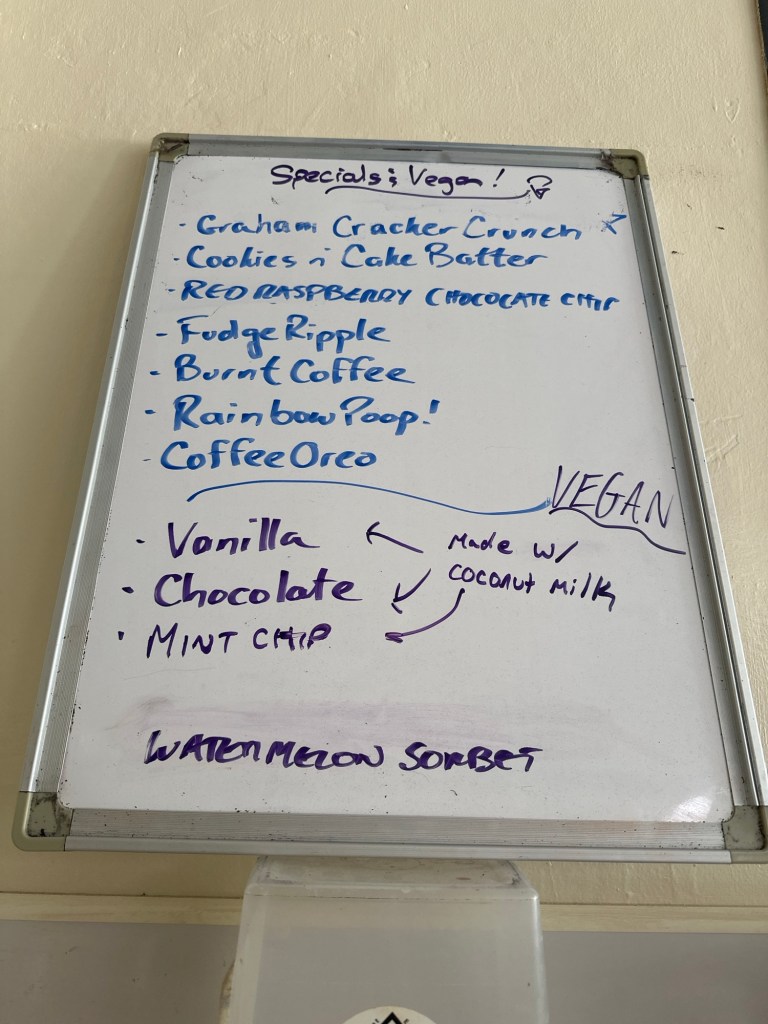 Specials & Vegan!
- Graham Cracker Crunch
- Cookies n' Cake Batter
- RED RASPBERRY CHOCOLATE CHIP
- Fudge Ripple
- Burnt Coffee
- Rainbow Poop!
- Coffee Oreo
VEGAN
• Vanilla
Made w/
coconut milk
• Chocolate
• MINT CHIP
WATERMELON SORBET